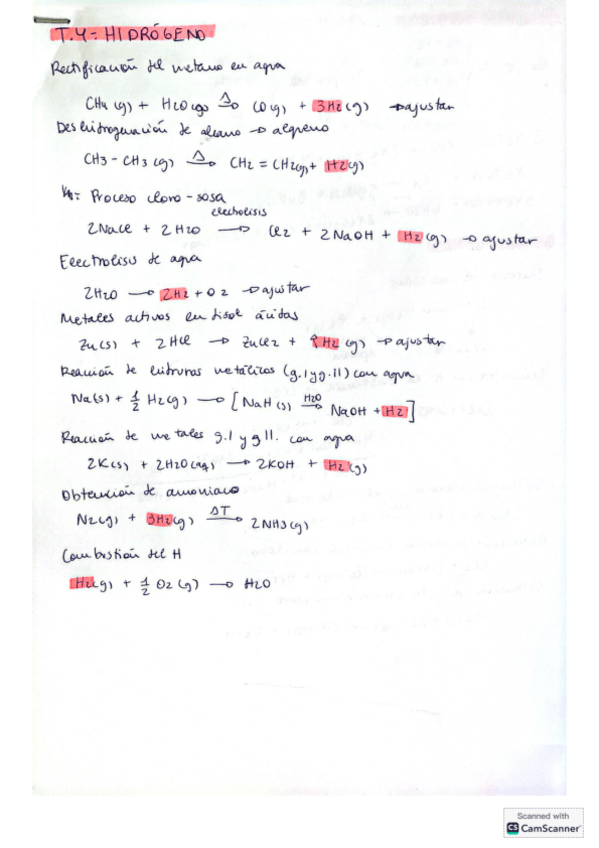 T.4 = HIDRÓGENO
Rectificación del metano en agua
CH4 (g) + H2O (g) Δ→ CO(g) + 3H2 (g) → ajustar
Deshidrogenación de alcano → alqueno
CH3 - CH3 (g) Δ→ CH2 = CH2(g) + H2(g)
Proceso cloro - sosa
electrolisis
2NaCl + 2H2O → Cl2 + 2NaOH + H2 (g) → ajustar
Electrolisis de agua
2H2O → 2H2 + O2 → ajustar
Metales activos en disol ácidas
Zn(s) + 2HCl → ZnCl2 + ↑H2 (g) → ajustar
Reacción de hidruros metálicos (g.I y g.II) con agua
Na(s) + 1/2 H2(g) → [NaH(s) H2O→ NaOH + H2]
Reacción de metales g.I y g II. con agua
2K(s) + 2H2O(aq) → 2KOH + H2(g)
Obtención de amoniaco
N2(g) + 3H2(g) ΔT→ 2NH3(g)
Combustión del H
H2(g) + 1/2 O2(g) → H2O
Scanned with
CS CamScanner